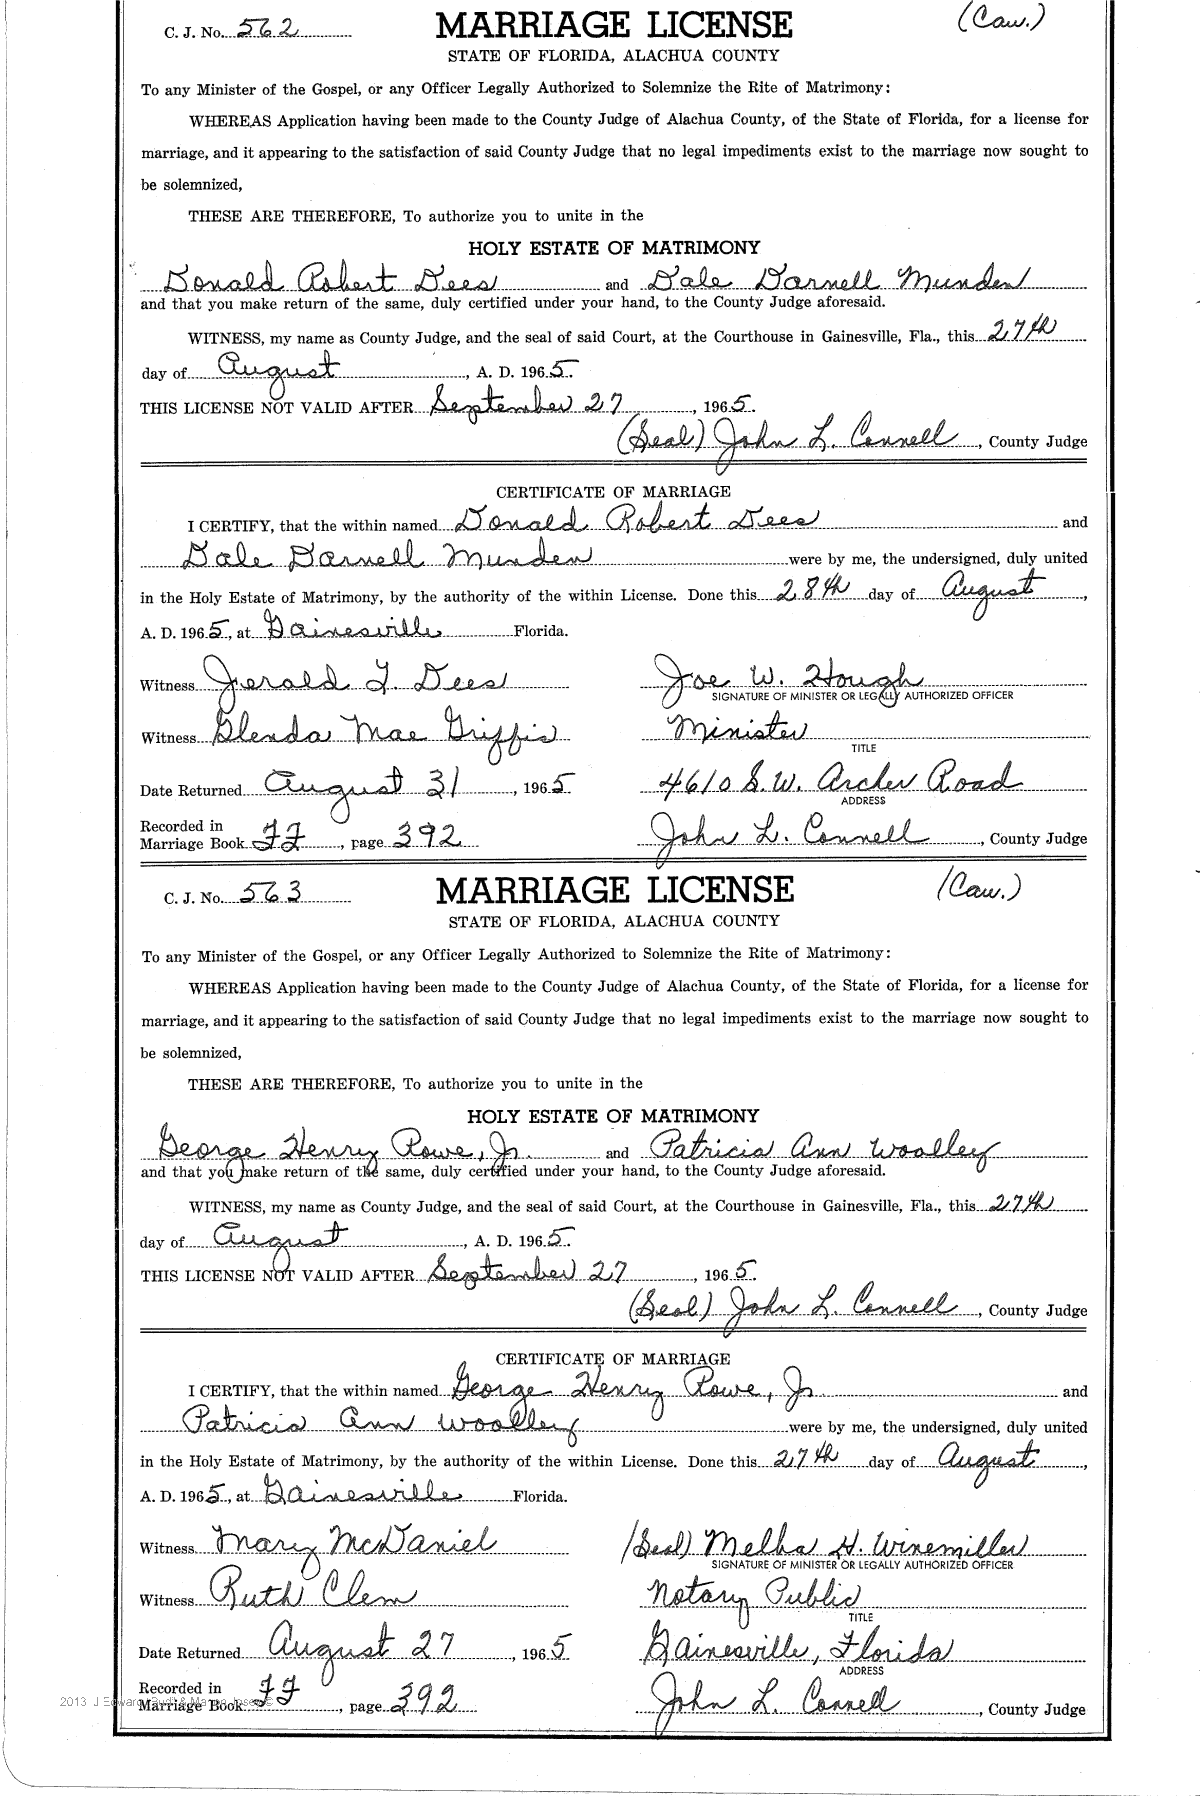 C. J. No. 562 MARRIAGE LICENSE (Caw.)
STATE OF FLORIDA, ALACHUA COUNTY
To any Minister of the Gospel, or any Officer Legally Authorized to Solemnize the Rite of Matrimony:
WHEREAS Application having been made to the County Judge of Alachua County, of the State of Florida, for a license for
marriage, and it appearing to the satisfaction of said County Judge that no legal impediments exist to the marriage now sought to
be solemnized,
THESE ARE THEREFORE, To authorize you to unite in the
HOLY ESTATE OF MATRIMONY
Donald Robert Dees and Dale Darnell Munden
and that you make return of the same, duly certified under your hand, to the County Judge aforesaid.
WITNESS, my name as County Judge, and the seal of said Court, at the Courthouse in Gainesville, Fla., this 27th
day of August, A. D. 1965.
THIS LICENSE NOT VALID AFTER September 27, 1965.
(Seal) John L. Connell, County Judge
CERTIFICATE OF MARRIAGE
I CERTIFY, that the within named Donald Robert Dees and
Dale Darnell Munden were by me, the undersigned, duly united
in the Holy Estate of Matrimony, by the authority of the within License. Done this 28th day of August,
A. D. 1965, at Gainesville Florida.
Witness Jerald L. Dees Joe W. Hough
SIGNATURE OF MINISTER OR LEGALLY AUTHORIZED OFFICER
Witness Glenda Mae Griffis Minister
TITLE
Date Returned August 31, 1965 4610 S.W. Archer Road
ADDRESS
Recorded in
Marriage Book FF, page 392 John L. Connell, County Judge
C. J. No. 563 MARRIAGE LICENSE (Caw.)
STATE OF FLORIDA, ALACHUA COUNTY
To any Minister of the Gospel, or any Officer Legally Authorized to Solemnize the Rite of Matrimony:
WHEREAS Application having been made to the County Judge of Alachua County, of the State of Florida, for a license for
marriage, and it appearing to the satisfaction of said County Judge that no legal impediments exist to the marriage now sought to
be solemnized,
THESE ARE THEREFORE, To authorize you to unite in the
HOLY ESTATE OF MATRIMONY
George Henry Rowe, Jr. and Patricia Ann Woolley
and that you make return of the same, duly certified under your hand, to the County Judge aforesaid.
WITNESS, my name as County Judge, and the seal of said Court, at the Courthouse in Gainesville, Fla., this 27th
day of August, A. D. 1965.
THIS LICENSE NOT VALID AFTER September 27, 1965.
(Seal) John L. Connell, County Judge
CERTIFICATE OF MARRIAGE
I CERTIFY, that the within named George Henry Rowe, Jr and
Patricia Ann Woolley were by me, the undersigned, duly united
in the Holy Estate of Matrimony, by the authority of the within License. Done this 27th day of August,
A. D. 1965, at Gainesville Florida.
Witness Mary McDaniel (Seal) Melba H. Winemiller
SIGNATURE OF MINISTER OR LEGALLY AUTHORIZED OFFICER
Witness Ruth Clem Notary Public
TITLE
Date Returned August 27, 1965 Gainesville, Florida
ADDRESS
Recorded in
Marriage Book FF, page 392 John L. Connell, County Judge
2013 J Edward